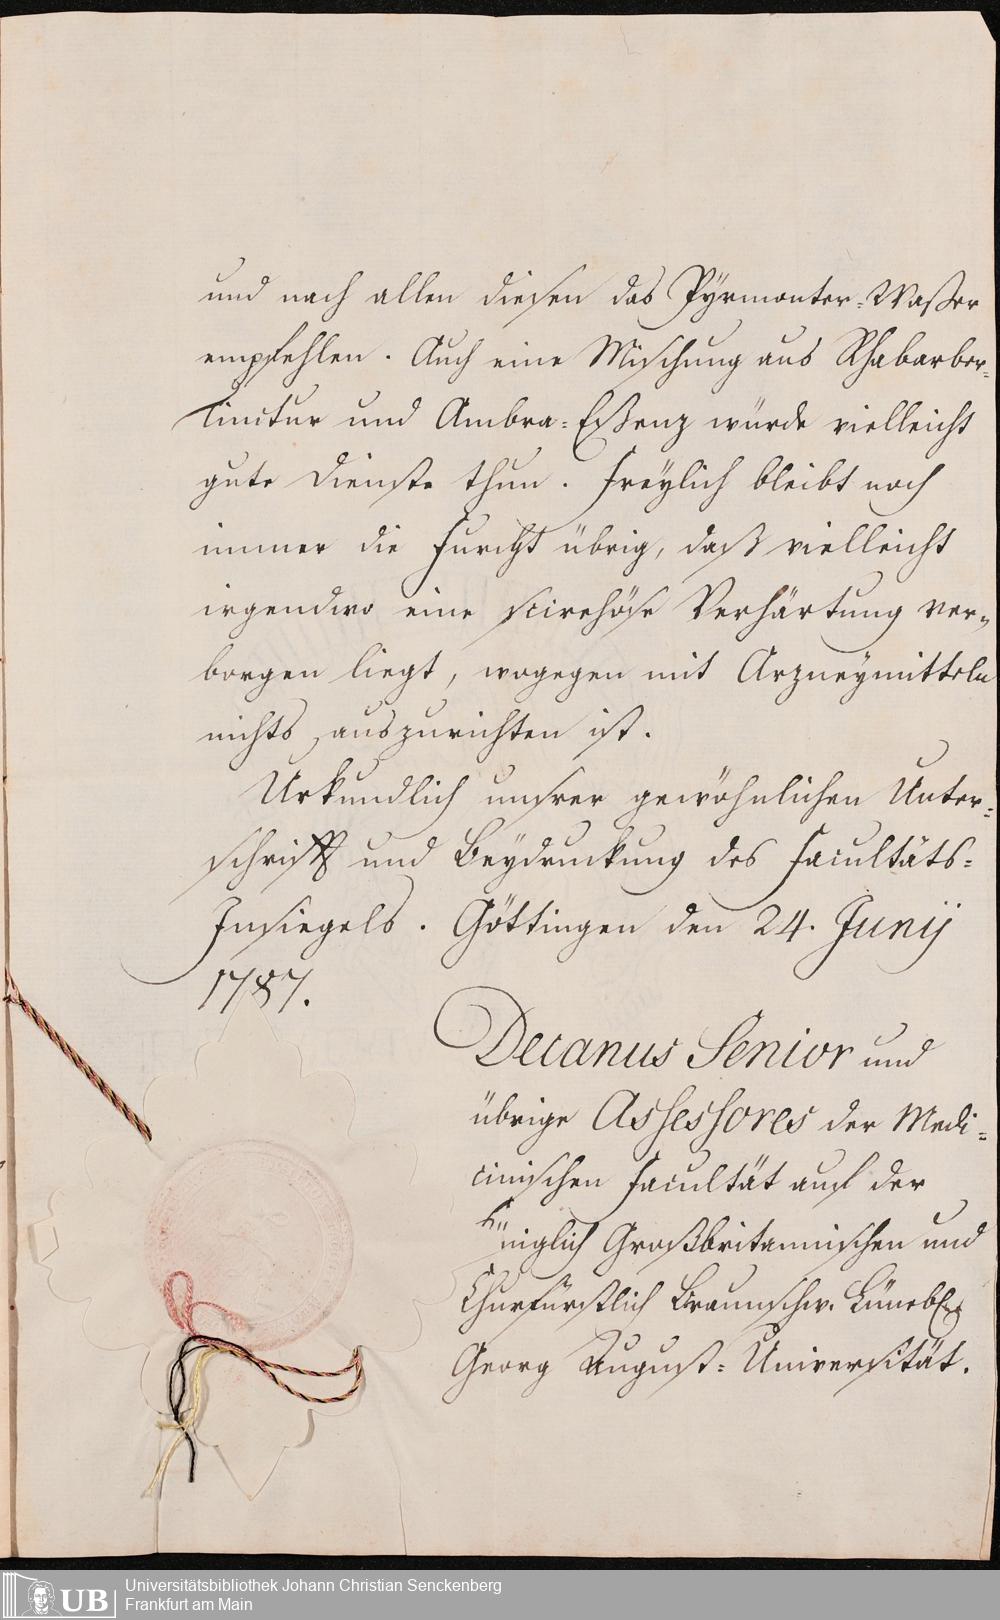 und nach allen diesen das Pÿrmonter-Waßer
empfehlen. Auch eine Mischung aus Rhabarber-
Tinctur und Ambra-Eßenz würde vielleicht
gute Dienste thun. Freÿlich bleibt noch
immer die Furcht übrig, daß vielleicht
irgendwo eine scirrhöse Verhärtung ver-
borgen liegt, wogegen mit Arzneÿmitteln
nichts auszurichten ist.
Urkundlich unsrer gewöhnlichen Unter-
schrift und Beÿdruckung des Facultäts-
Insiegels. Göttingen den 24. Junij
1787.
Decanus Senior und
übrige Assessores der Medi-
cinischen Facultät auf der
Königlich Großbritannischen und
Churfürstlich Braunschw. Lünebl.
Georg August-Universität.
UB
Universitätsbibliothek Johann Christian Senckenberg
Frankfurt am Main